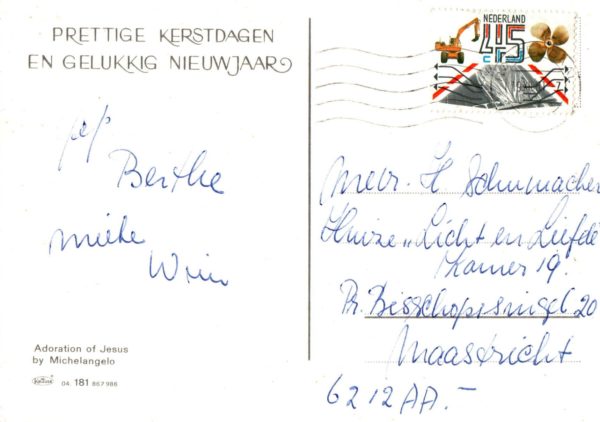 PRETTIGE KERSTDAGEN
EN GELUKKIG NIEUWJAAR
NEDERLAND
45
Berthe
mieke
Wim
Adoration of Jesus
by Michelangelo
04 181 867986
Mevr. H Schumacher
Huize „Licht en Liefde
Kamer 19.
Pr. Bisschopsingel 20
Maastricht
6212AA.-